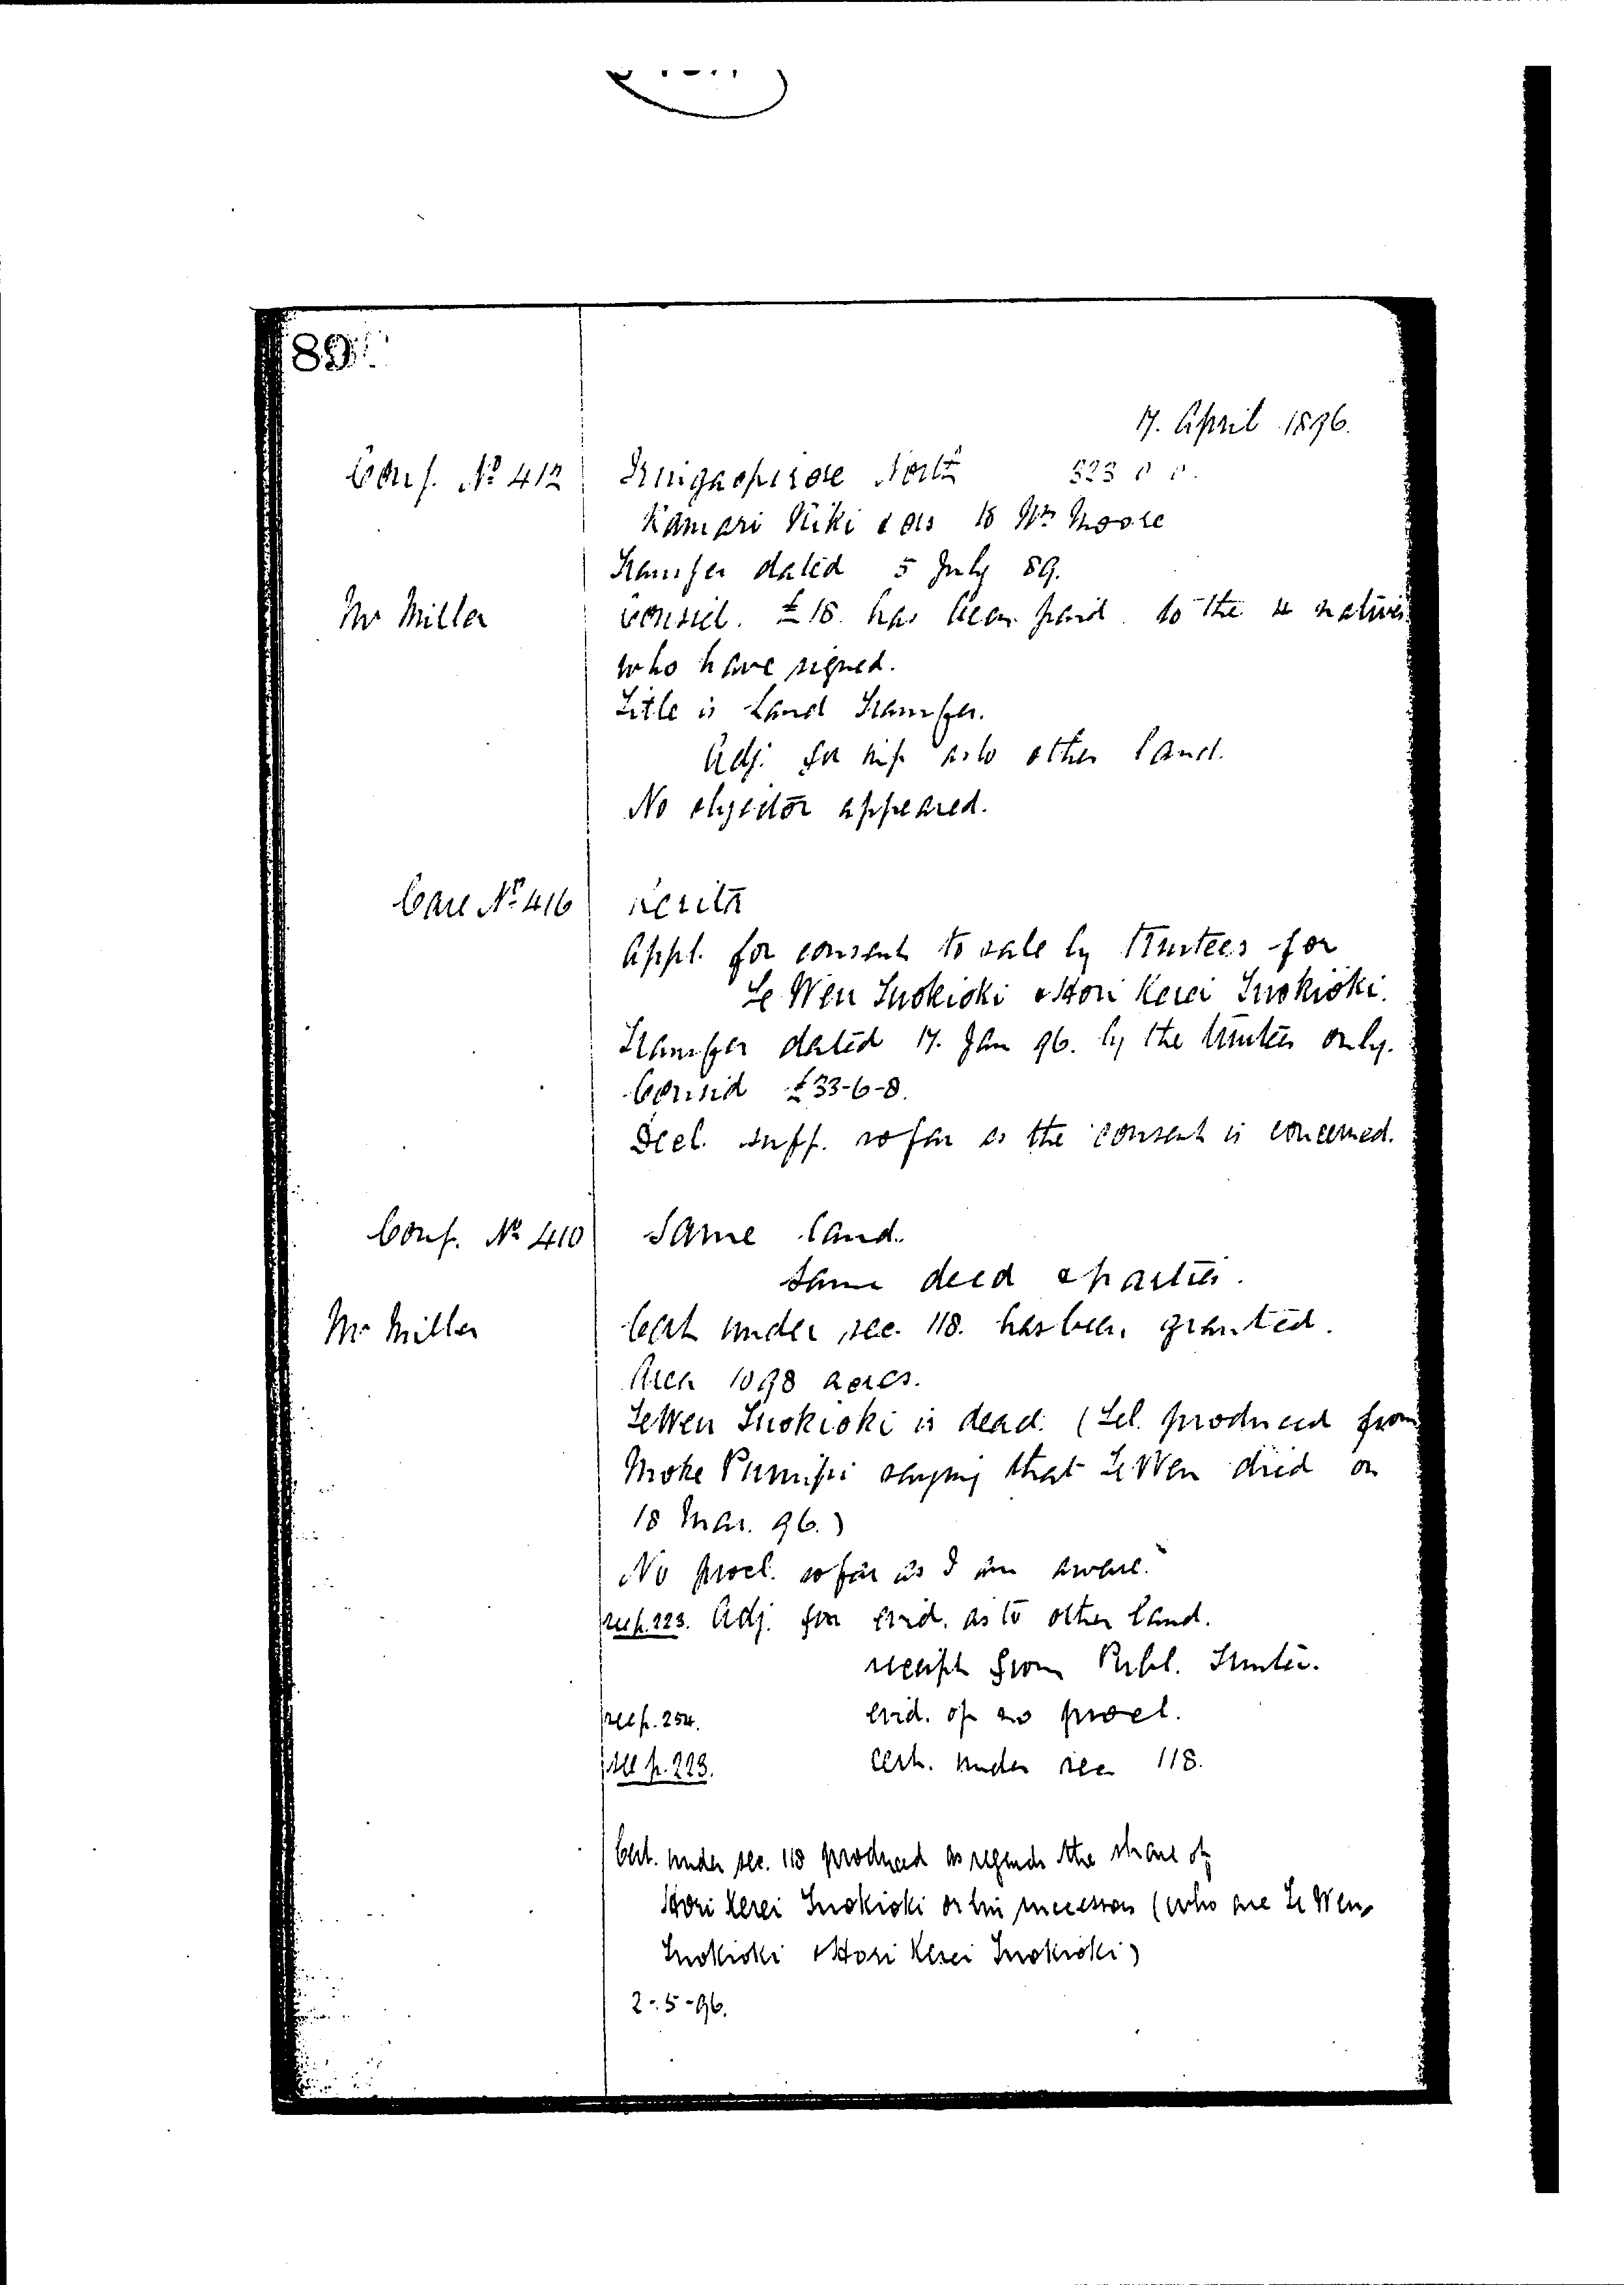 89
17. April 1896.
Conf. No 412 North 523 0 0.
Kamari Kiki & ors to Wm Moore
Transfer dated 5 July 89.
Mr Miller Consid. £18. has been paid to the 4 natives
who have signed.
Title is Land Transfer.
Adj. for as to other land.
No objector appeared.
Case No 416 Kerita
Appl. for consent to sale by trustees for
Te Wen Tuokioki & Hori Kerei Tuokioki.
Transfer dated 17. Jan 96. by the trustees only.
Consid £33-6-8.
Decl. suff. so far as the consent is concerned.
Conf. No 410 Same land.
Same deed & parties.
Mr Miller Cert. under sec. 118. has been granted.
Area 1098 acres.
Te Wen Tuokioki is dead. (Tel. produced from
Moke Pumipi saying that Te Wen died on
18 Mar. 96.)
No procl. so far as I am aware.
see p. 223. Adj. for evid. as to other land.
receipt from Publ. Trustee.
see p. 254. evid. of no procl.
see p. 223. cert. under sec 118.
Cert. under sec. 118 produced as regards the share of
Hori Kerei Tuokioki or his successors (who are Te Wen
Tuokioki & Hori Kerei Tuokioki)
2-5-96.